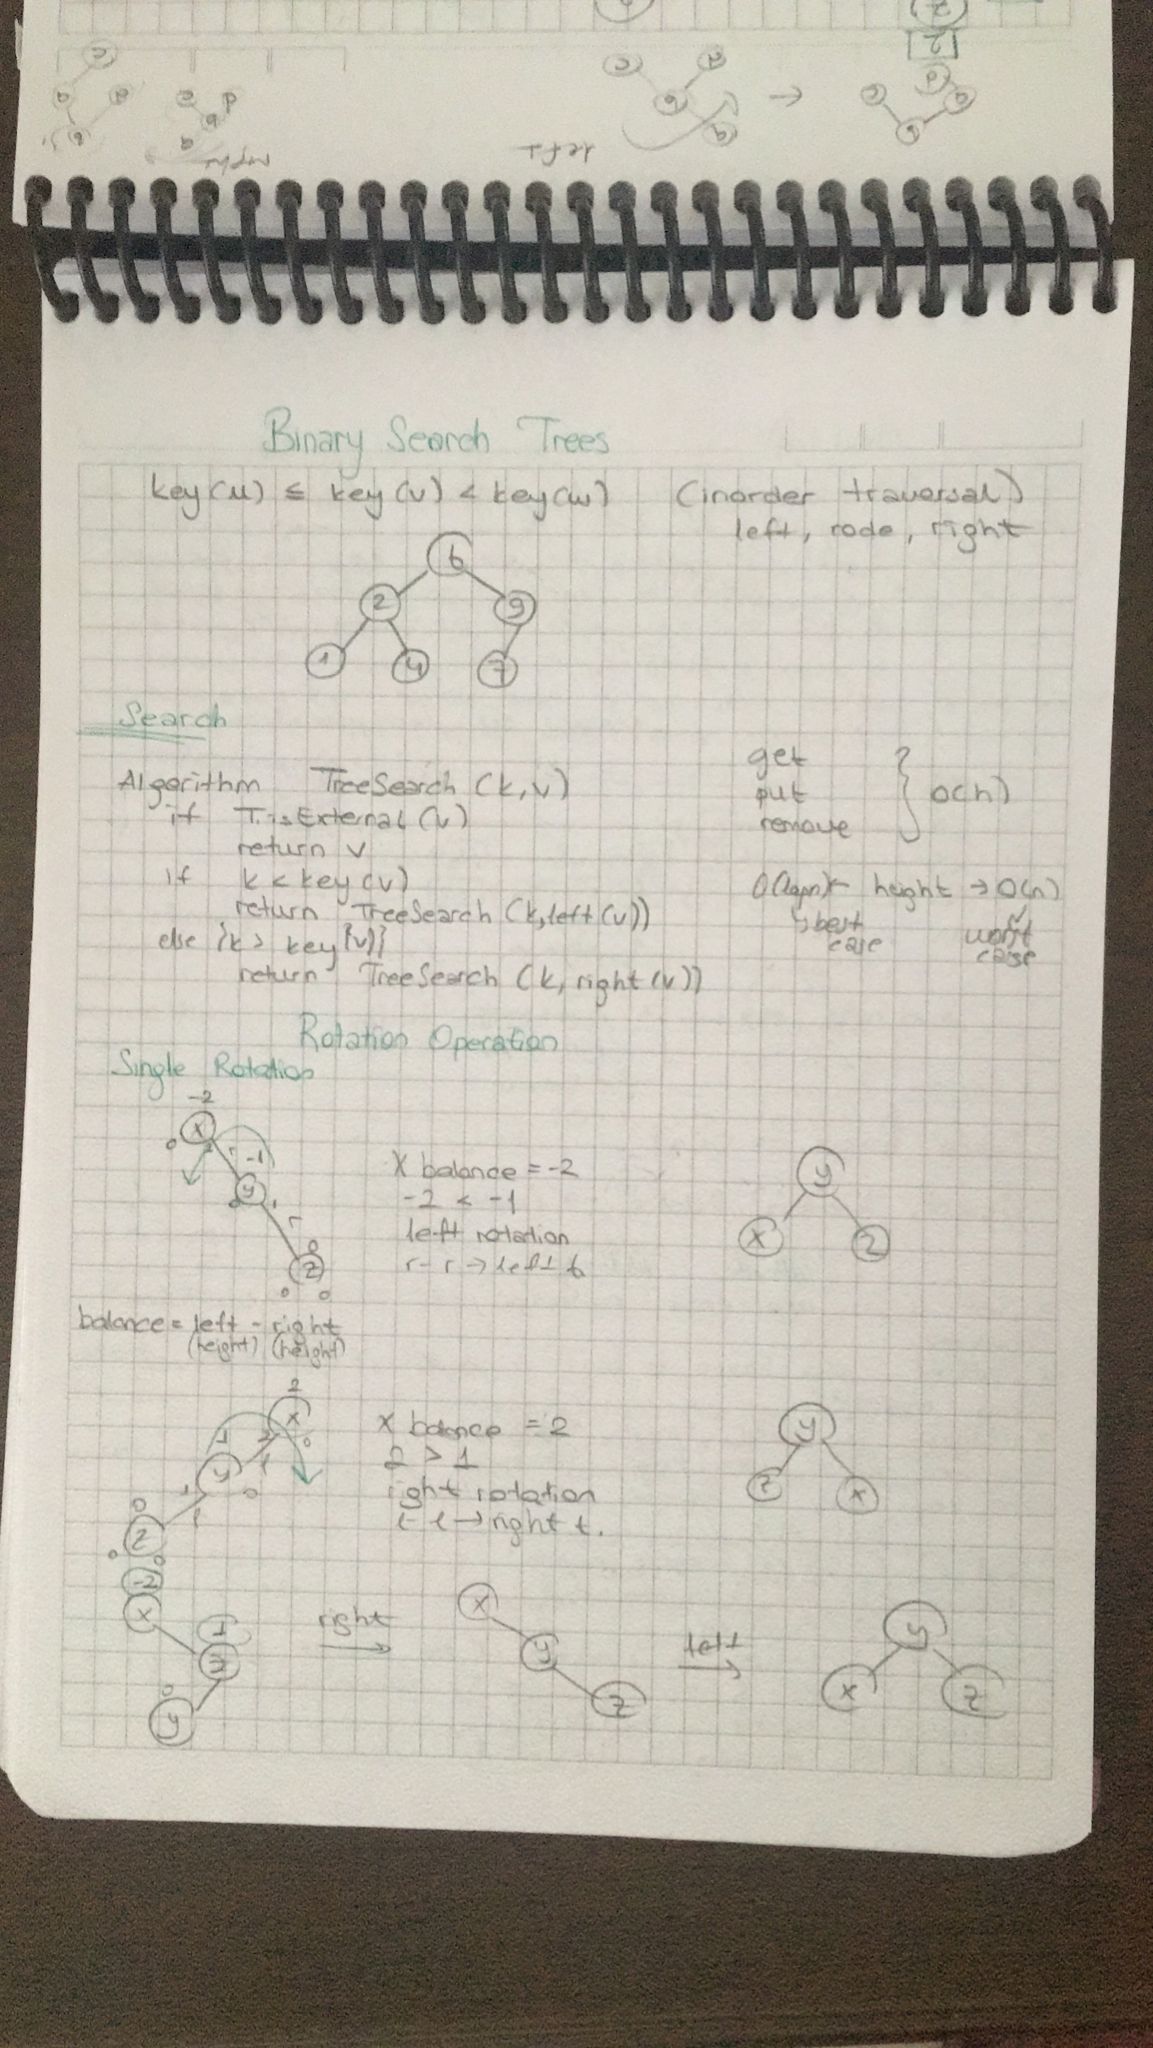 left
right
Binary Search Trees
key(u) ≤ key(v) < key(w) (inorder traversal)
left, rode, right
6
2 9
1 4 7
Search
Algorithm TreeSearch (k,v)
if T.isExternal(v)
return v
if k < key(v)
return TreeSearch (k,left(v))
else {k > key(v)}
return TreeSearch (k, right(v))
get
put
remove
O(h)
O(logn) ← height → O(n)
best case
worst case
Rotation Operation
Single Rotation
-2
x
0
-1
y
z
0
0 0
x balance = -2
-2 < -1
left rotation
r-r → left t.
y
x z
balance = left - right
(height) (height)
2
x
y
0
0
z
0
x balance = 2
2 > 1
right rotation
l-l → right t.
y
z x
-2
x
1
z
0
y
right →
x
y
z
left →
y
x z